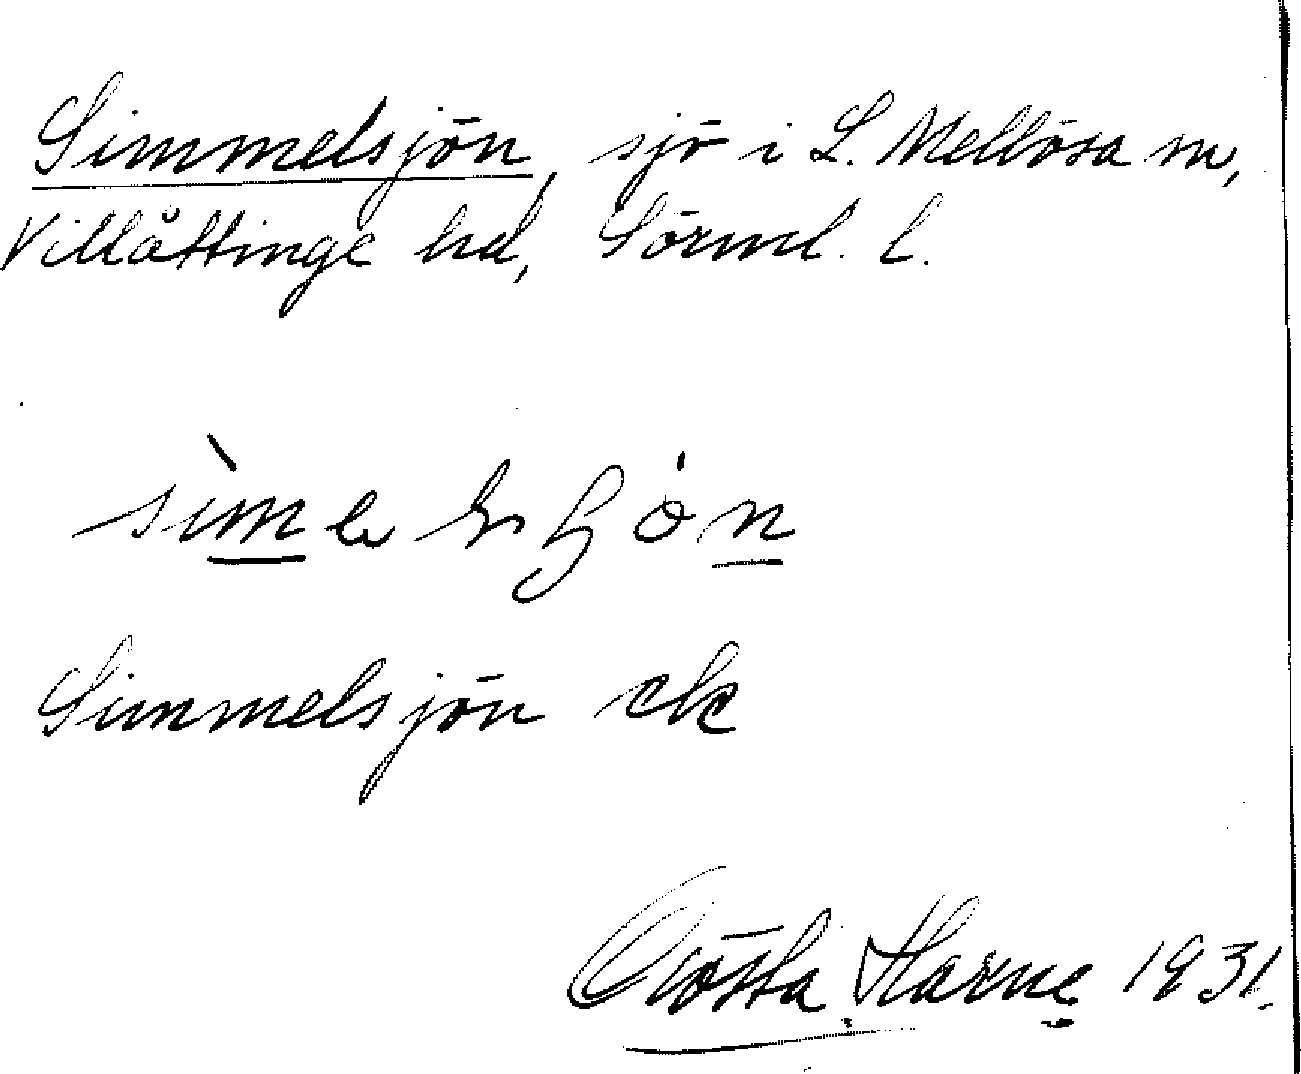 Simmelsjön, sjö i L. Mellösa sn,
Villåttinge hd, Sörml. l.
Simmelsjön ek
Gösta Harne 1931.